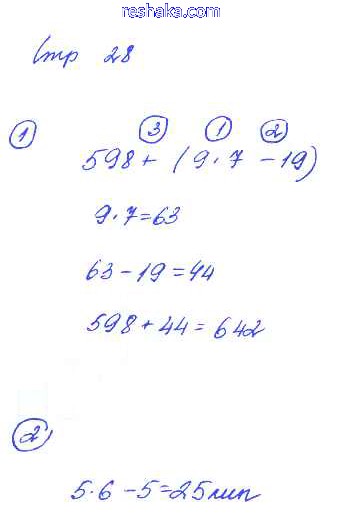 reshaka.com
Стр 28
1
3 1 2
598 + (9 · 7 - 19)
9 · 7 = 63
63 - 19 = 44
598 + 44 = 642
2
5 · 6 - 5 = 25 лип